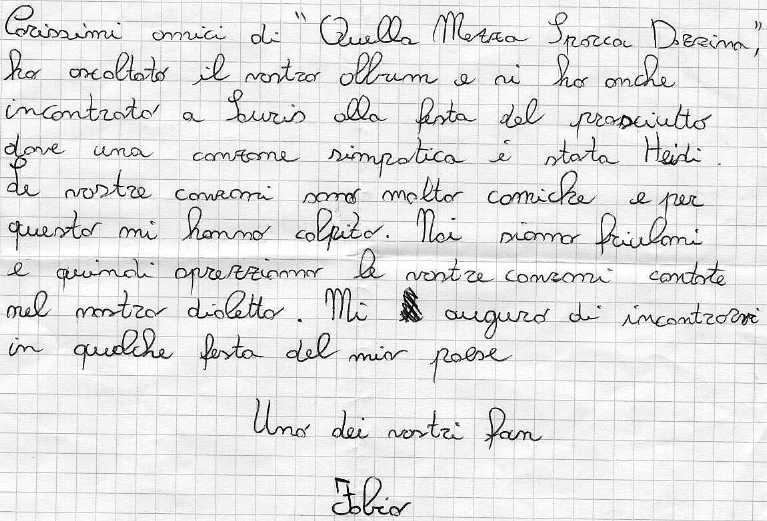 Carissimi amici di "Quella Mezza Sporca Dozzina",
ho ascoltato il vostro album e vi ho anche
incontrato a Sauris alla festa del prosciutto
dove una canzone simpatica è stata Heidi.
Le vostre canzoni sono molto comiche e per
questo mi hanno colpito. Noi siamo friulani
e quindi aprezziamo le vostre canzoni cantate
nel nostro dialetto. Mi auguro di incontrarvi
in qualche festa del mio paese
Uno dei vostri fan
Fabio